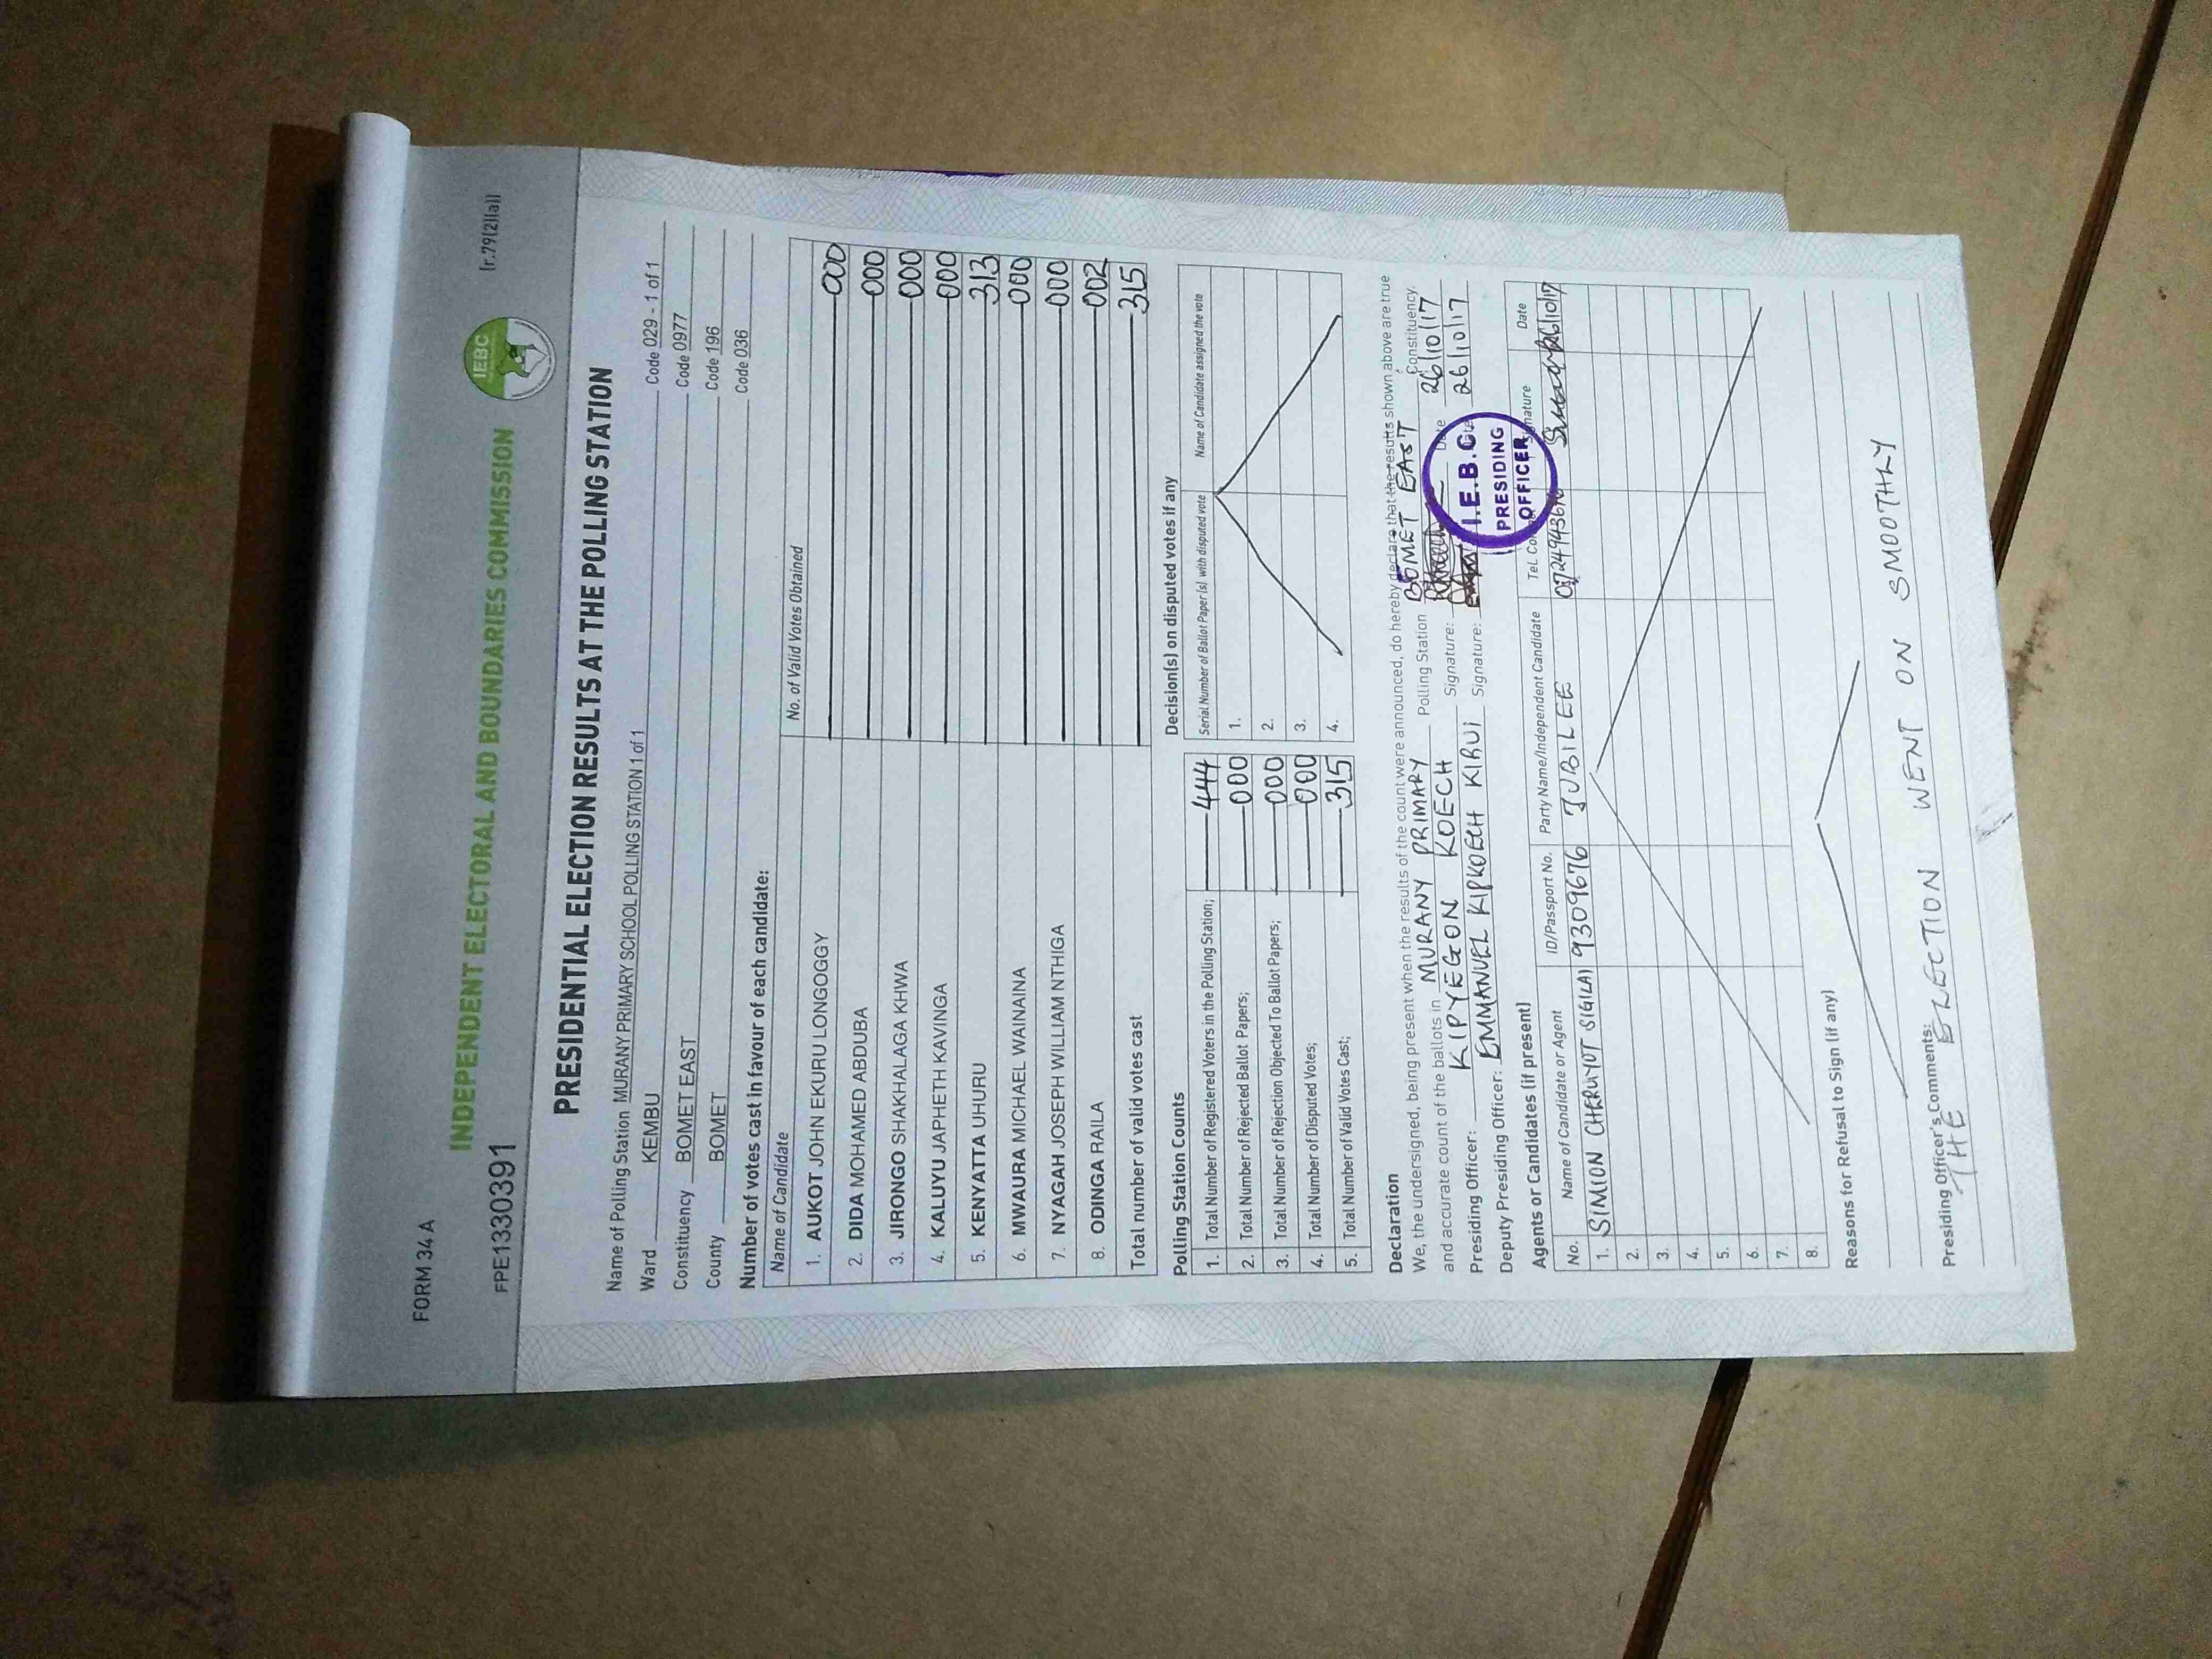 FORM 34 A
INDEPENDENT ELECTORAL AND BOUNDARIES COMMISSION
IEBC
(r.79(2)(a))
FPE1330391
PRESIDENTIAL ELECTION RESULTS AT THE POLLING STATION
Name of Polling Station MURANY PRIMARY SCHOOL POLLING STATION 1 of 1 Code 029 - 1 of 1
Ward KEMBU Code 0977
Constituency BOMET EAST Code 196
County BOMET Code 036
Number of votes cast in favour of each candidate:
Name of Candidate No. of Valid Votes Obtained
1. AUKOT JOHN EKURU LONGOGGY 000
2. DIDA MOHAMED ABDUBA 000
3. JIRONGO SHAKHALAGA KHWA 000
4. KALUYU JAPHETH KAVINGA 000
5. KENYATTA UHURU 313
6. MWAURA MICHAEL WAINAINA 000
7. NYAGAH JOSEPH WILLIAM NTHIGA 000
8. ODINGA RAILA 002
Total number of valid votes cast 315
Polling Station Counts
1. Total Number of Registered Voters in the Polling Station; 444
2. Total Number of Rejected Ballot Papers; 000
3. Total Number of Rejection Objected To Ballot Papers; 000
4. Total Number of Disputed Votes; 000
5. Total Number of Valid Votes Cast; 315
Decision(s) on disputed votes if any
Serial Number of Ballot Paper(s) with disputed vote Name of Candidate assigned the vote
1.
2.
3.
4.
Declaration
We, the undersigned, being present when the results of the count were announced, do hereby declare that the results shown above are true
and accurate count of the ballots in MURANY PRIMARY Polling Station BOMET EAST Constituency.
Presiding Officer: KIPYEGON KOECH Signature: Date 26/10/17
Deputy Presiding Officer: EMMANUEL KIPKOECH KIRUI Signature: 26/10/17
I.E.B.C.
PRESIDING
OFFICER
Agents or Candidates (if present)
No. Name of Candidate or Agent ID/Passport No. Party Name/Independent Candidate Tel. Signature Date
1. SIMION CHERUYOT SIGILAI 9309676 JUBILEE 26/10/17
2.
3.
4.
5.
6.
7.
8.
Reasons for Refusal to Sign (if any)
Presiding Officer's Comments:
THE ELECTION WENT ON SMOOTHLY